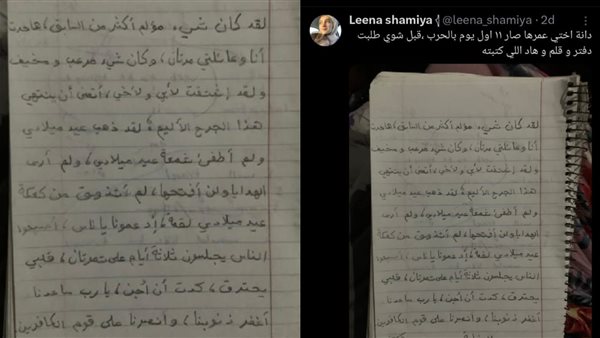 لقد كان شيء مؤلم أكثر من السابق، هاجرت
أنا وعائلتي مرتان، وكان شيء مرعب و مخيف
و لقد إشتقت لأبي ولأخي، أتمنى أن ينتهي
هذا الجرح الأليم لقد ذهب عيد ميلادي
ولم أطفئ شمعة عيد ميلادي، ولم أرى
الهدايا ولن أفتحها، لم أتذوق من كعكة
عيد ميلادي لقمة، إدعمونا يا ناس، أصبحوا
الناس يجلسون ثلاثة أيام على تمرتان، قلبي
يحترق، كدت أن أجن، يا رب ساعدنا
أغفر ذنوبنا، وانصرنا على قوم الكافرين
Leena shamiya
@leena_shamiya · 2d
دانة اختي عمرها صار ١١ اول يوم بالحرب ،قبل شوي طلبت
دفتر و قلم و هاد اللي كتبته
لقد كان شيء مؤلم أكثر من السابق، هاجرت
أنا وعائلتي مرتان، وكان شيء مرعب و مخيف
و لقد إشتقت لأبي ولأخي، أتمنى أن ينتهي
هذا الجرح الأليم لقد ذهب عيد ميلادي
ولم أطفئ شمعة عيد ميلادي، ولم أرى
الهدايا ولن أفتحها، لم أتذوق من كعكة
عيد ميلادي لقمة، إدعمونا يا ناس، أصبحوا
الناس يجلسون ثلاثة أيام على تمرتان، قلبي
يحترق، كدت أن أجن، يا رب ساعدنا
أغفر ذنوبنا، وانصرنا على قوم الكافرين